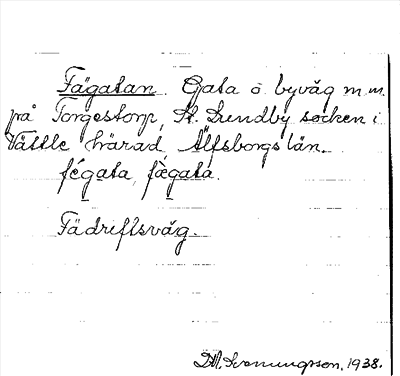 Fägatan. Gata o. byväg m.m.
på Torgestorp, St. Lundby socken i
Vättle härad, Älfsborgs län.
fégata, fægata.
Fädriftsväg.
D.A. Svenungsson, 1938.